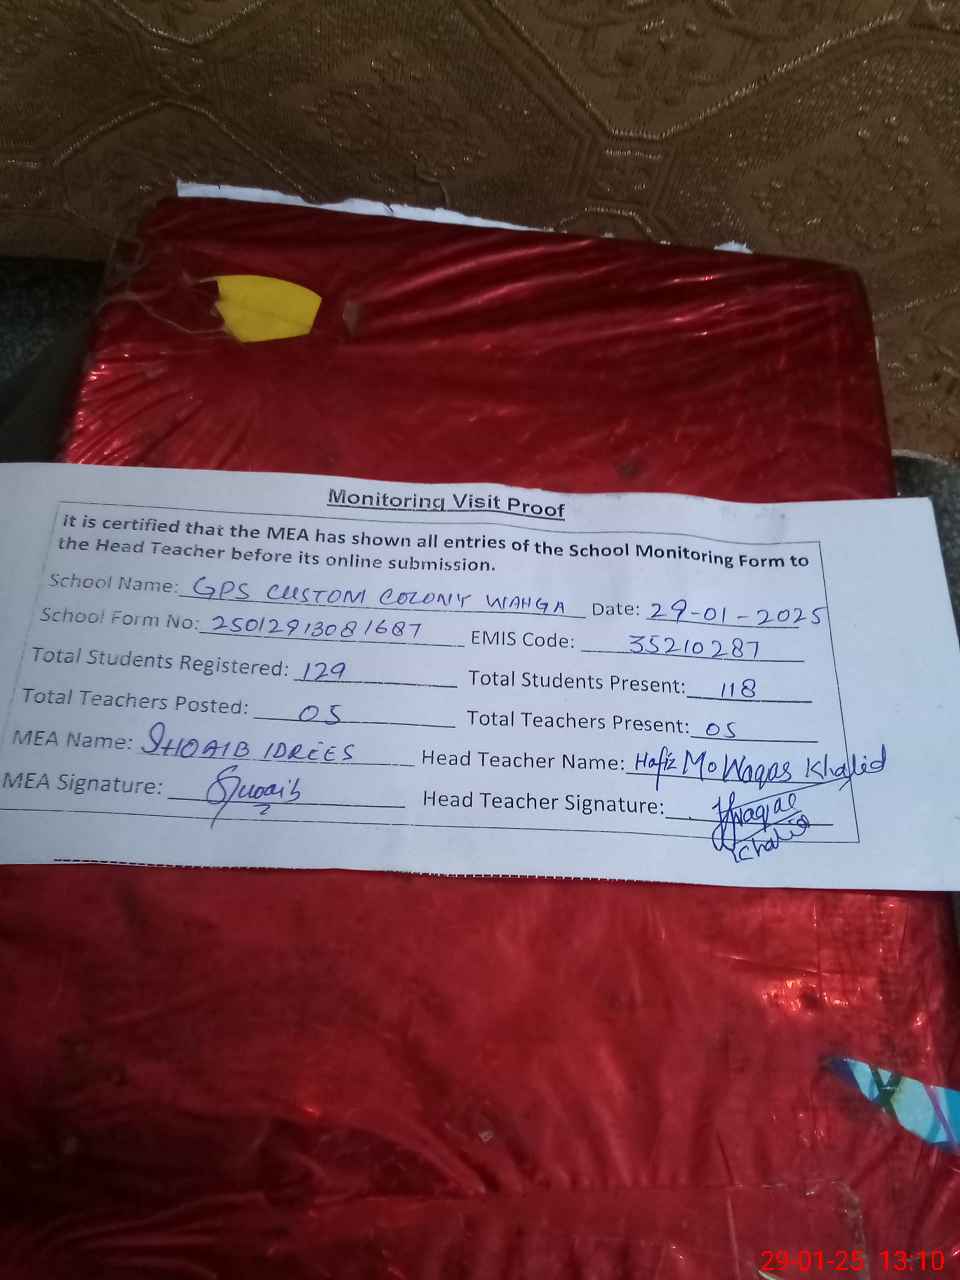 Monitoring Visit Proof
it is certified that the MEA has shown all entries of the School Monitoring Form to
the Head Teacher before its online submission.
School Name: GPS CUSTOM COLONY WAHGA Date: 29-01-2025
School Form No: 25012913081687 EMIS Code: 35210287
Total Students Registered: 129 Total Students Present: 118
Total Teachers Posted: 05 Total Teachers Present: 05
MEA Name: SHOAIB IDREES Head Teacher Name: Hafiz Mo Waqas Khalid
MEA Signature: Shoaib Head Teacher Signature: Waqas
Khalid
29-01-25 13:10